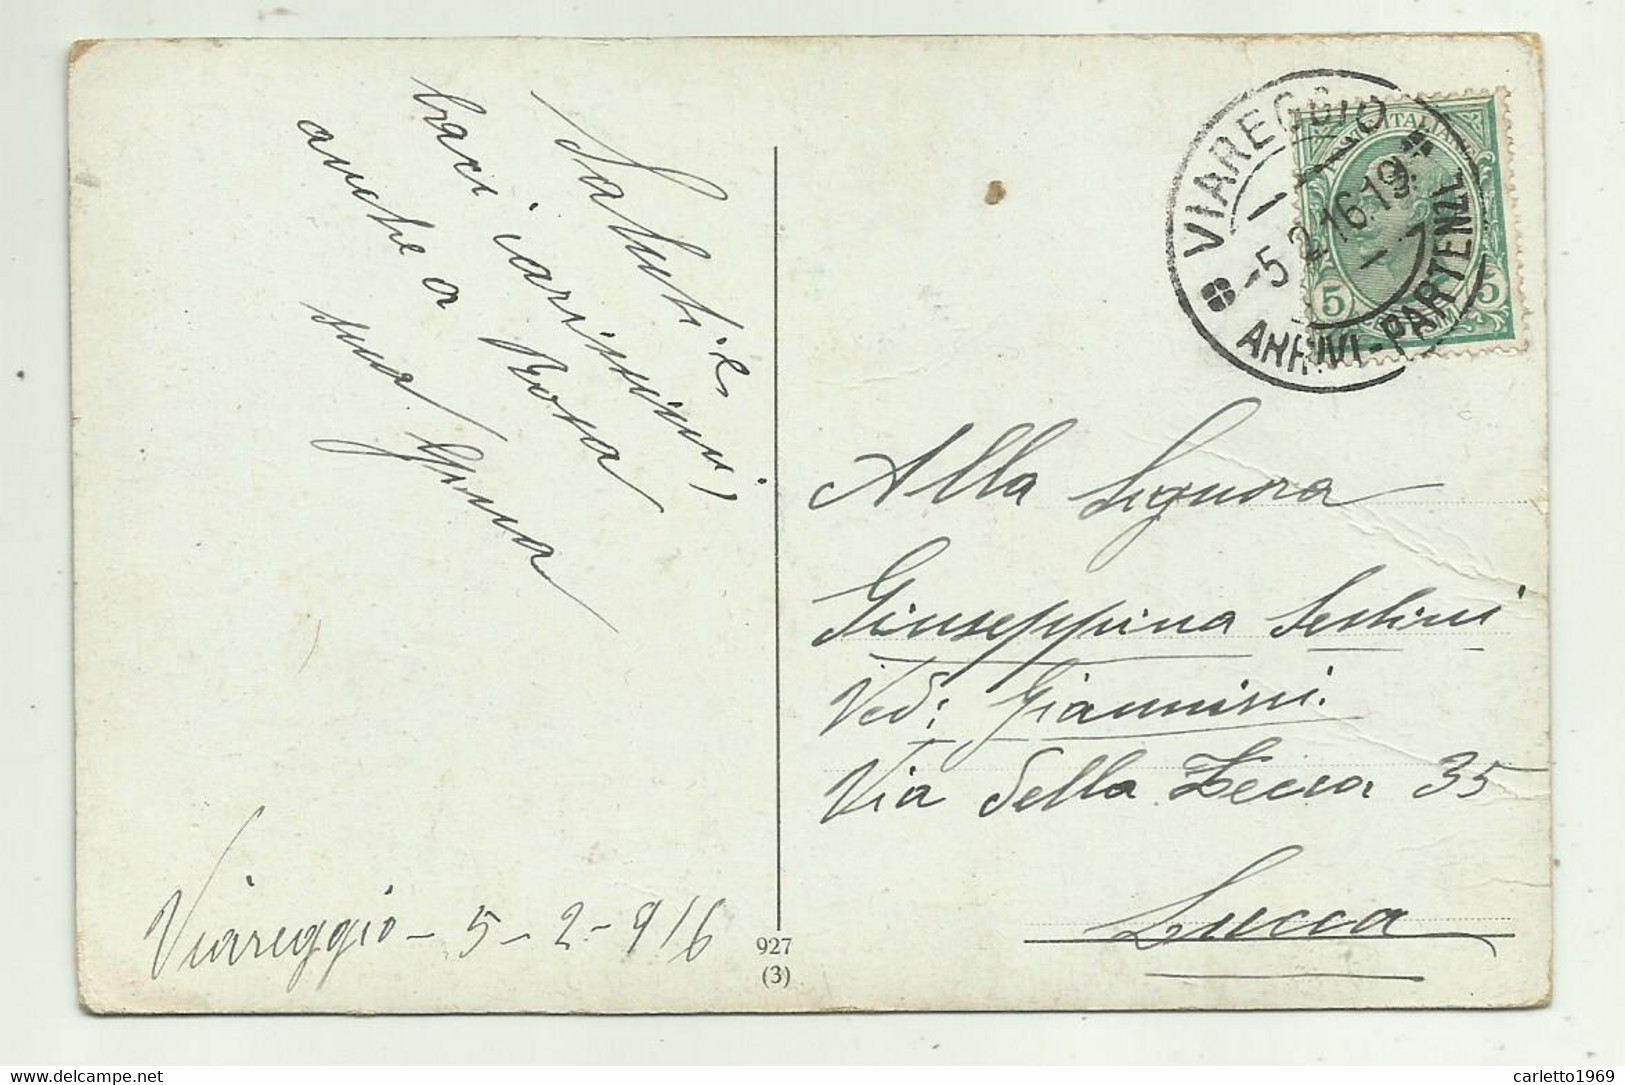 Saluti e
baci carissimi,
anche a Rosa
sua Gina
Viareggio - 5 - 2 - 916
927
(3)
VIAREGGIO
-5.2.16.19.
ARRIVI-PARTENZE
ITALIANE
5 5
Alla Signora
Giuseppina Sestini
Ved: Giannini.
Via della Zecca 35
Lucca
Delcampe.net
carletto1969